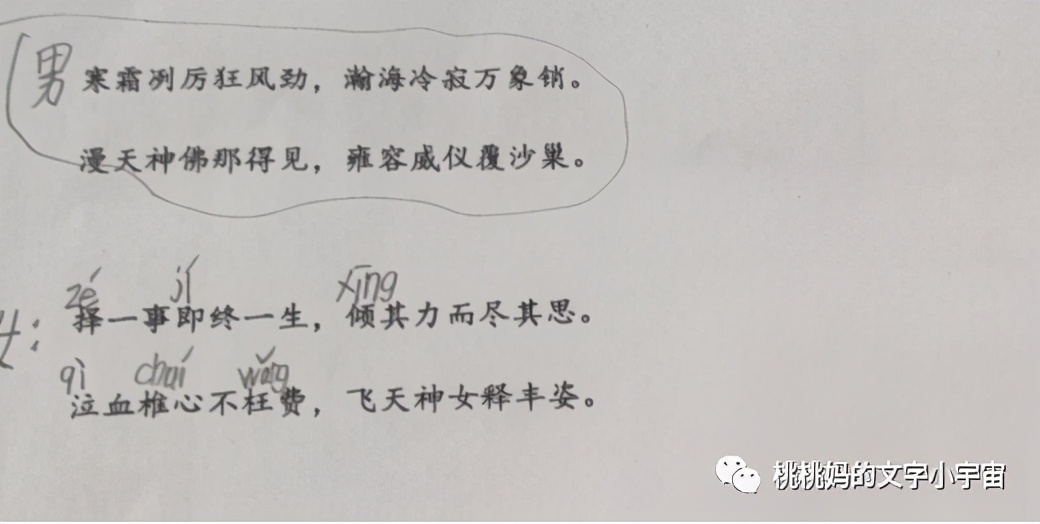 男 寒霜冽厉狂风劲，瀚海冷寂万象销。
漫天神佛那得见，雍容威仪覆沙巢。
zé jí xīng
女：择一事即终一生，倾其力而尽其思。
qì chaí wǎng
泣血椎心不枉费，飞天神女释丰姿。
桃桃妈的文字小宇宙